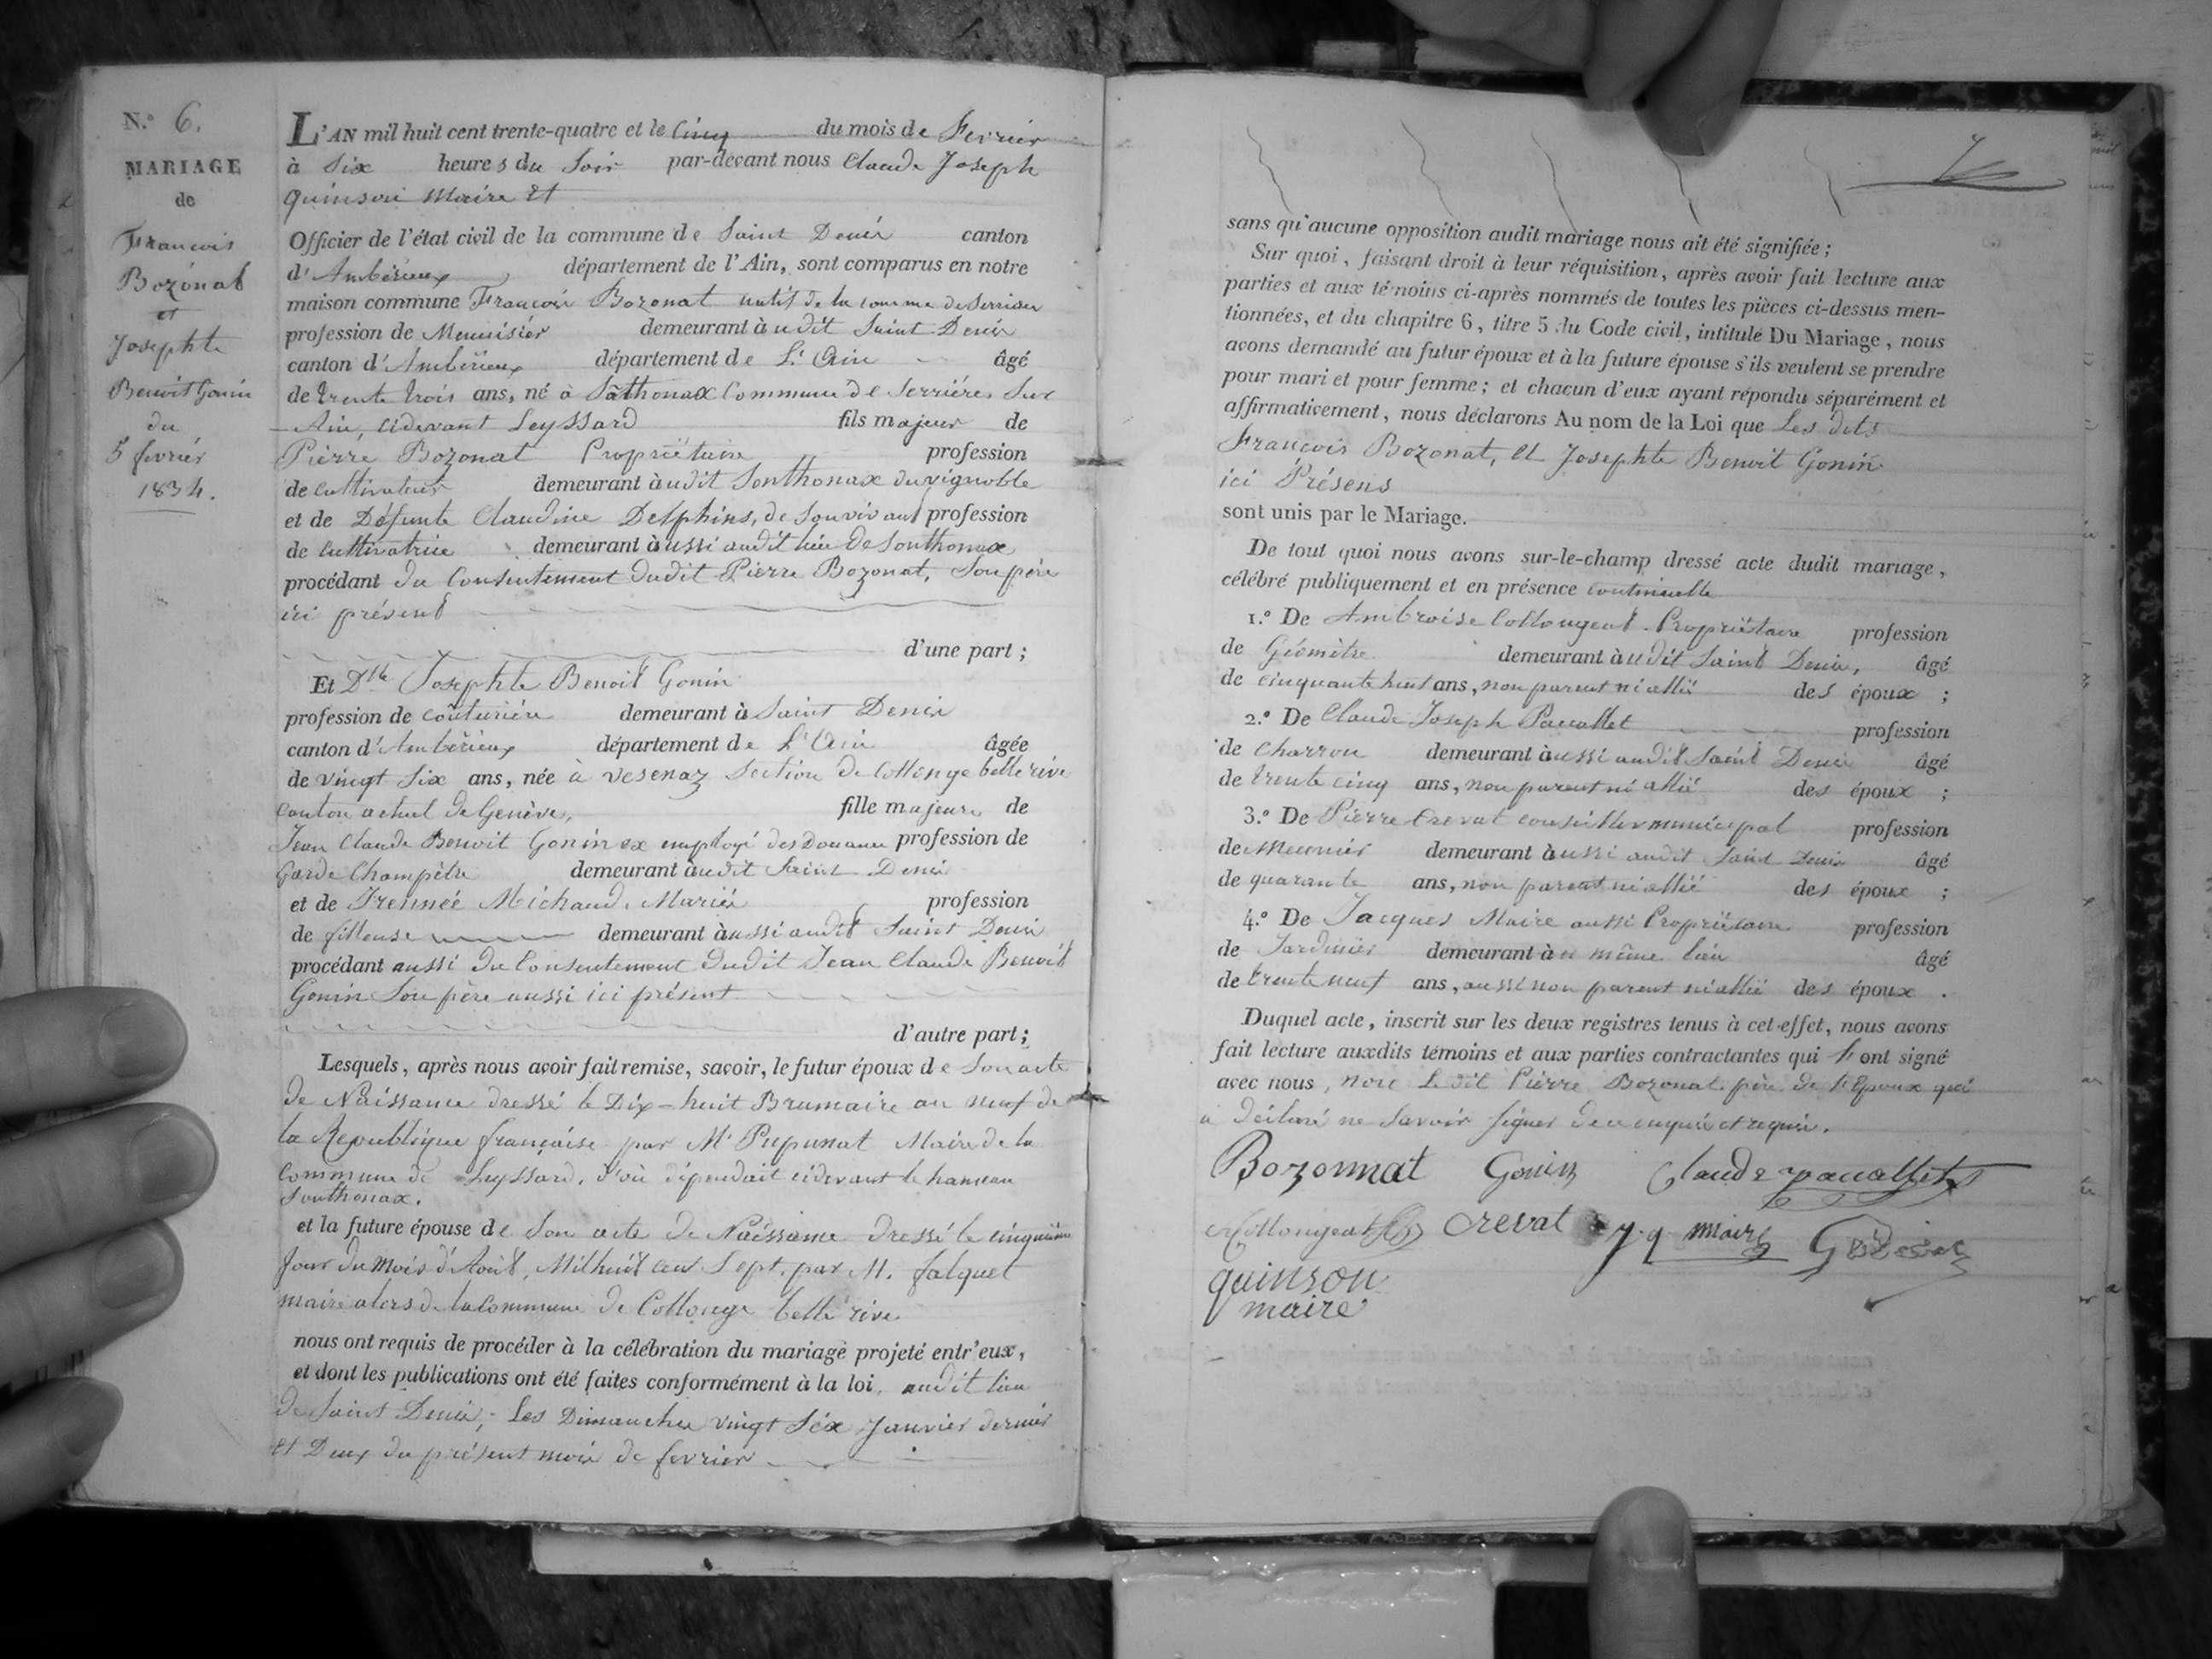 N.º 6.
MARIAGE
de
Francois
Bozonat
et
Josephte
Benoit Gonin
du
5 fevrier
1834.
L'AN mil huit cent trente-quatre et le Cinq du mois de Fevrier
à Six heures du Soir par-devant nous Claude Joseph
quinson Maire Et
Officier de l'état civil de la commune de Saint Denis canton
d'Ambérieux, département de l'Ain, sont comparus en notre
maison commune François Bozonat natif de la commune de Serrieres
profession de Menuisier demeurant àudit Saint Denis
canton d'Ambérieux département de L'Ain âgé
de trente trois ans, né à Sothonax Commune de Serriéres Sur
Ain, cidevant Leyssard fils majeur de
Pierre Bozonat Propriétaire profession
de Cultivateur demeurant àudit Sonthonax du vignoble
et de Défunte Claudine Delphins, de Son vivant profession
de Cultivatrice demeurant àussi audit lieu de Sonthonax
procédant du Consentement dudit Pierre Bozonat, Son père
ici présent
d'une part ;
Et Dlle Josephte Benoit Gonin
profession de coûturière demeurant à Saint Denis
canton d'Ambérieux département de L'Ain âgée
de vingt Six ans, née à vesenaz Section de Collonge belle rive
Canton actuel de Genève, fille majeure de
Jean Claude Benoit Gonin ex employé des Douanes profession de
Garde Champêtre demeurant àudit Saint Denis
et de Frennée Michaud, Mariés profession
de fileuse demeurant àussi audit Saint Denis
procédant aussi du Consentement dudit Jean Claude Benoit
Gonin Son père aussi ici présent
d'autre part ;
Lesquels, après nous avoir fait remise, savoir, le futur époux de Son acte
de Naissance dressé le Dix-huit Brumaire an neuf de
la Republique française par Mr Pupunat Maire de la
Commune de Leyssard, d'où dépendait cidevant le hameau
Sonthonax.
et la future épouse de Son acte de Naissance dressé le cinquième
Jour du Mois d'Août, Mil huit cent Sept, par M. falquet
maire alors de la Commune de Collonge belle rive
nous ont requis de procéder à la célébration du mariage projeté entr'eux,
et dont les publications ont été faites conformément à la loi, audit lieu
de Saint Denis, Les Dimanches vingt Six Janvier dernier
Et Deux du présent mois de fevrier
sans qu'aucune opposition audit mariage nous ait été signifiée ;
Sur quoi, faisant droit à leur réquisition, après avoir fait lecture aux
parties et aux témoins ci-après nommés de toutes les pièces ci-dessus men-
tionnées, et du chapitre 6, titre 5 du Code civil, intitulé Du Mariage, nous
avons demandé au futur époux et à la future épouse s'ils veulent se prendre
pour mari et pour femme ; et chacun d'eux ayant répondu séparément et
affirmativement, nous déclarons Au nom de la Loi que Les dits
François Bozonat, Et Josephte Benoit Gonin
ici Présens
sont unis par le Mariage.
De tout quoi nous avons sur-le-champ dressé acte dudit mariage,
célébré publiquement et en présence continuelle
1.º De Ambroise Collongeat Propriétaire profession
de Géomètre demeurant àudit Saint Denis, âgé
de cinquante huit ans, non parent ni allié des époux ;
2.º De Claude Joseph Pacallet profession
de Charron demeurant àussi audit Saint Denis âgé
de trente cinq ans, non parent ni allié des époux ;
3.º De Pierre Crevat conseiller municipal profession
de Meunier demeurant àussi audit Saint Denis âgé
de quarante ans, non parent ni allié des époux ;
4.º De Jacques Maire aussi Propriétaire profession
de Jardinier demeurant àu même lieu âgé
de trente neuf ans, aussi non parent ni allié des époux .
Duquel acte, inscrit sur les deux registres tenus à cet effet, nous avons
fait lecture auxdits témoins et aux parties contractantes qui l'ont signé
avec nous, non Le dit Pierre Bozonat père de l'Epoux qui
a déclaré ne Savoir Signer de ce enquis et requis.
Bozonnat Gonin Claude pacallet
Collongeat Crevat J. q maire
quinson
maire